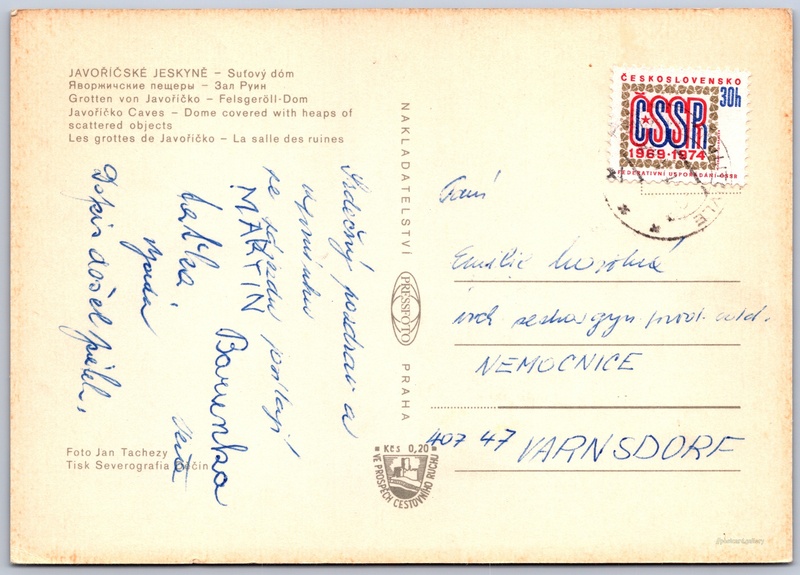 JAVOŘÍČSKÉ JESKYNĚ – Suťový dóm
Яворжичские пещеры – Зал Руин
Grotten von Javoříčko – Felsgeröll-Dom
Javoříčko Caves – Dome covered with heaps of
scattered objects
Les grottes de Javoříčko – La salle des ruines
Srdečný pozdrav a
vzpomínku
ze zájezdu posílají
MARTIN
Barunka
Dopis došel
Foto Jan Tachezy
Tisk Severografia Děčín
NAKLADATELSTVÍ
PRESSFOTO
PRAHA
Kčs 0,20
VE PROSPĚCH CESTOVNÍHO RUCHU
ČESKOSLOVENSKO
30h
ČSSR
1969-1974
FEDERATIVNÍ USPOŘÁDÁNÍ ČSSR
Paní
Emilie
NEMOCNICE
407 47 VARNSDORF